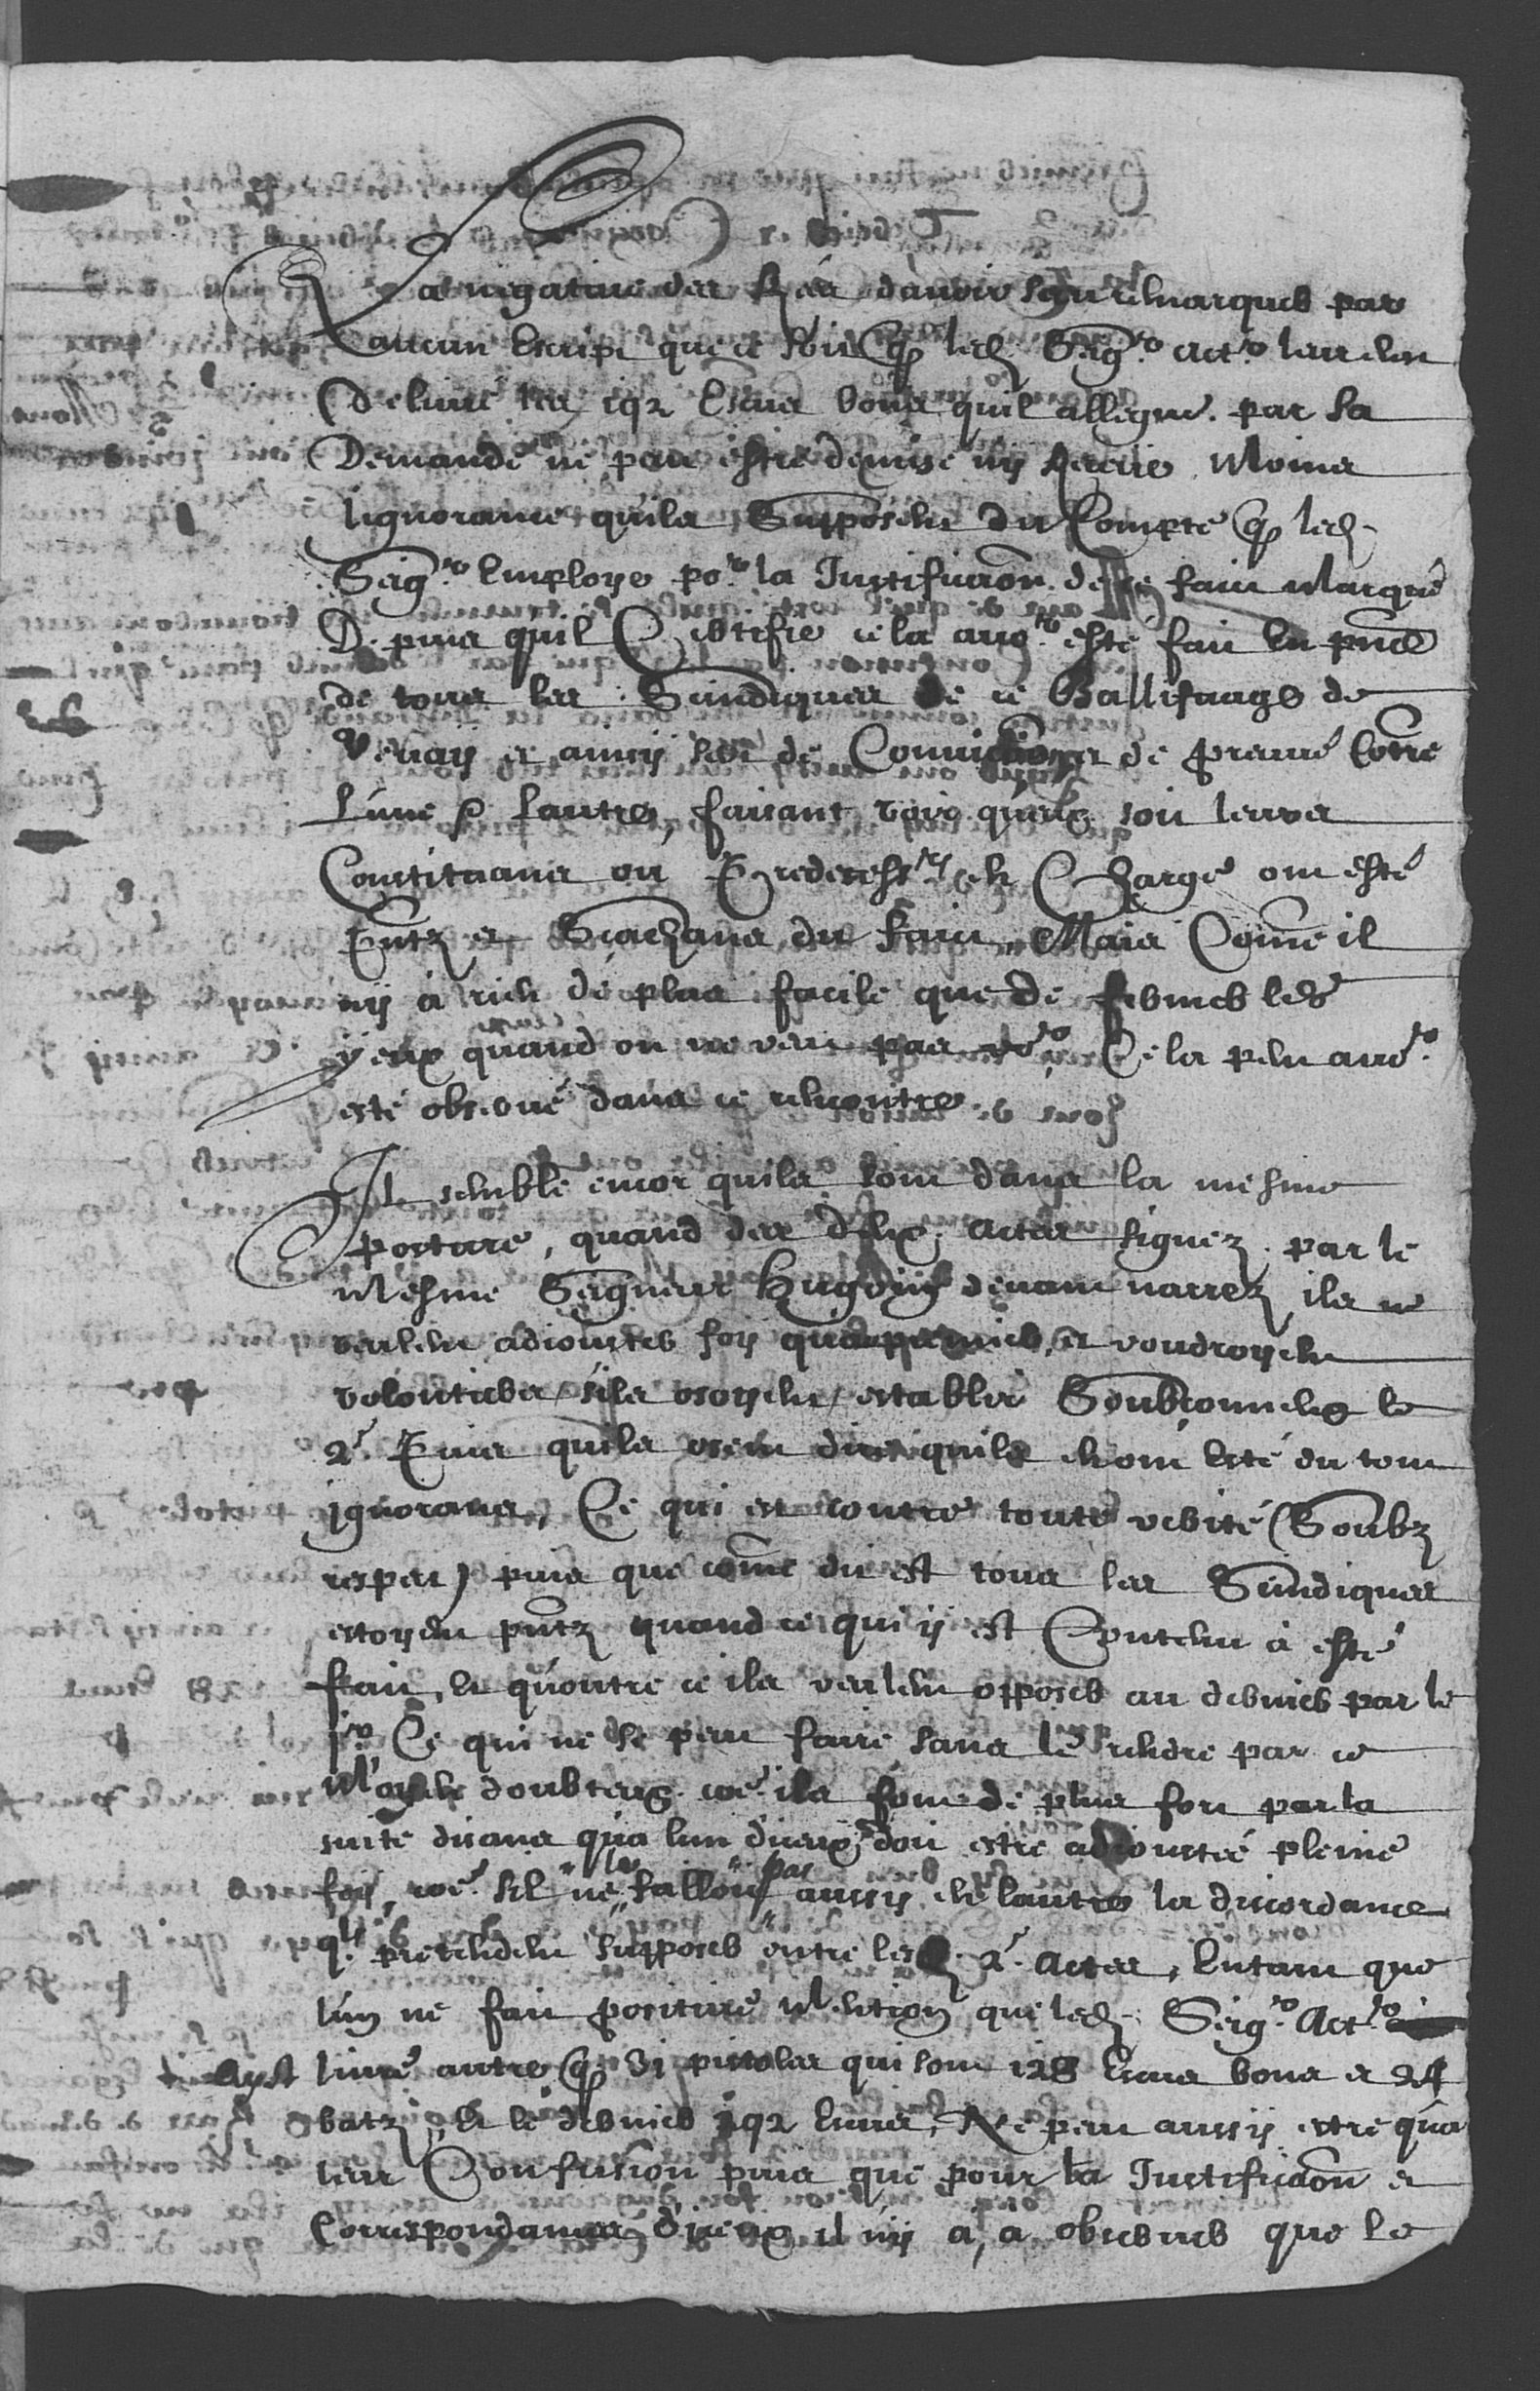 La negative des Rées d'avoir sceu remarquer par
aucun Escript que ce soit q̃ led. Seigr. actr. leur eut
Delivré les 192 Escus bons quil allegue par sa
Demande ne peut estre admise ny Moins
lignorance quils Supposent du Compte q̃ led.
Seigr. Employe por. la Justificaõn de ce fait Marqué
D. puis quil Certifie cela avor. esté fait en pñce
de tous les Scindiques de ce Ballifvage de
et ainsy sert de Conviction et de preuve Cõtre
Lune & Lautre, faisant voir quils soit leurs
Constituans ou Predecessrs. en Charge ont esté
pñtz et Scachans du fait, Mais Cõme il
ny a rien de plus facile que de fermer les
yeux quand on ne veut pas veor. Cela peut avor.
esté observé dans ce rencontre.
Il semble encor quils sont dans la mesme
posture, quand des deux actes signez par le
Mesme Seigneur Hugonij devant narrez ils ne
veulent adiouster foy qu'au premier, et voudroyent
volontiers s'ils osoyent establir Soubçonneux le
2e. Puis quils osent dire quils en ont esté du tout
jgnorans, Ce qui est contre toute verité (Soubz
respect) puis que cõme dit est tous les Scindiques
estoyent pñtz quand ce qui y est Contenu à esté
fait, Et qu'outre ce ils veulent opposer au dernier par le
1er. Ce qui ne se peut faire sans le rendre par ce
Moyen doubteux coẽ ils font de plus fort par la
suite disans qu'à lun d'iceux doit estre adjoustée pleine
foy, coẽ sil ne le falloit pas aussy en lautre la discordance
qls. pretendent supposer entre lesd. 2. actes, Entant que
lun ne fait positive Mention que led. Seigr. Actr.
ayt livré autre q̃ 31 pistoles qui sont 128 Escus bons et 24
batz, Et le dernier 192 Escus, Ne peut aussy estre qu'à
leur Confusion puis que pour la Justificaõn et
Correspondance d'iceux il ny a, a observer que le